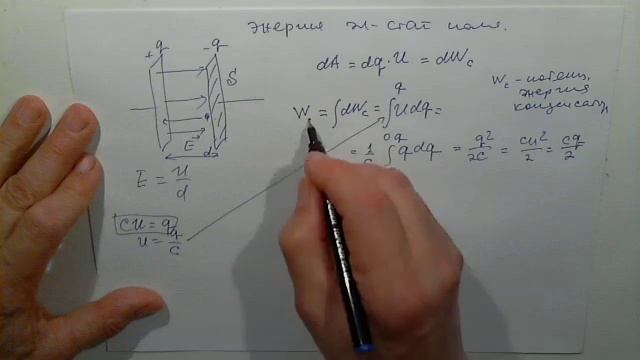 Энергия эл-стат поля.
+q -q
S
E
d
E = U/d
CU = q
U = q/C
dA = dq · U = dWc
Wc - потенц.
энергия
конденсат.
W = ∫dWc = ∫₀^q U dq =
= 1/C ∫₀^q q dq = q²/2C = CU²/2 = Cq/2